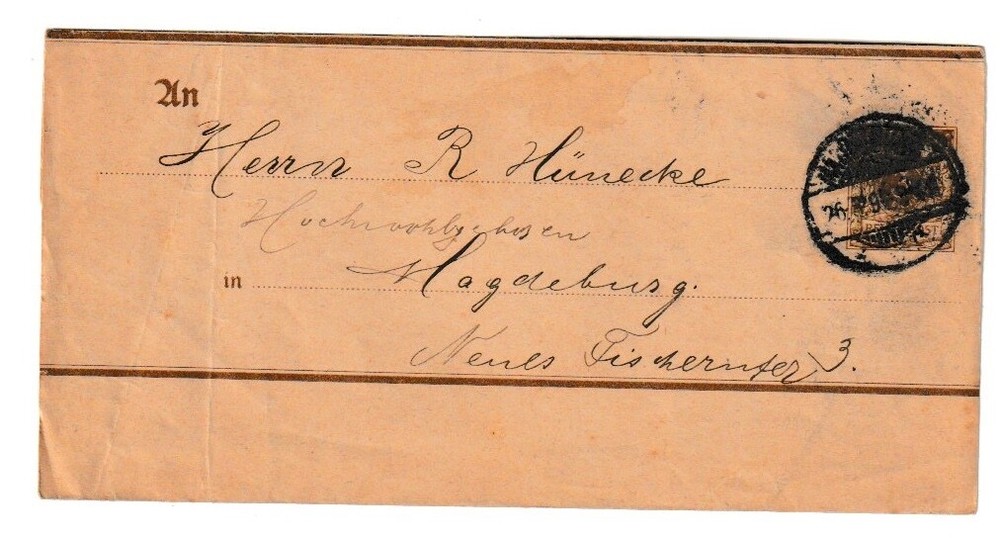 An
Herrn R Hünecke
Hochwohlgeboren
in Magdeburg.
Neues Fischerufer 3.
26